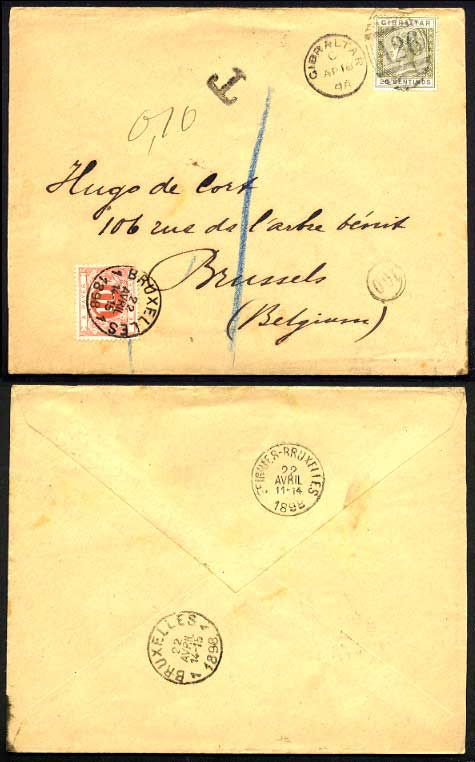 GIBRALTAR
C
AP 18
98
GIBRALTAR
26
20 CENTIMOS
T
0,10
Hugo de Cort
106 rue de l'arbre bénit
Brussels
(Belgium)
160
10
BRUXELLES 1
22
AVRIL
14-15
1898
IRMES-BRUXELLES
22
AVRIL
11-14
1898
BRUXELLES 1
22
AVRIL
14-15
1898